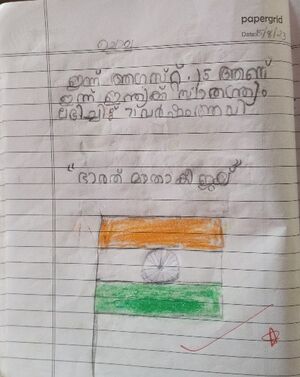 papergrid
Date: 15/8/23
ഇന്ന് ആഗസ്റ്റ് 15 ആണ്
ഇന്ന് ഇന്ത്യക്ക് സ്വാതന്ത്ര്യം
ലഭിച്ചിട്ട്
"ഭാരത് മാതാ കീ ജയ്"